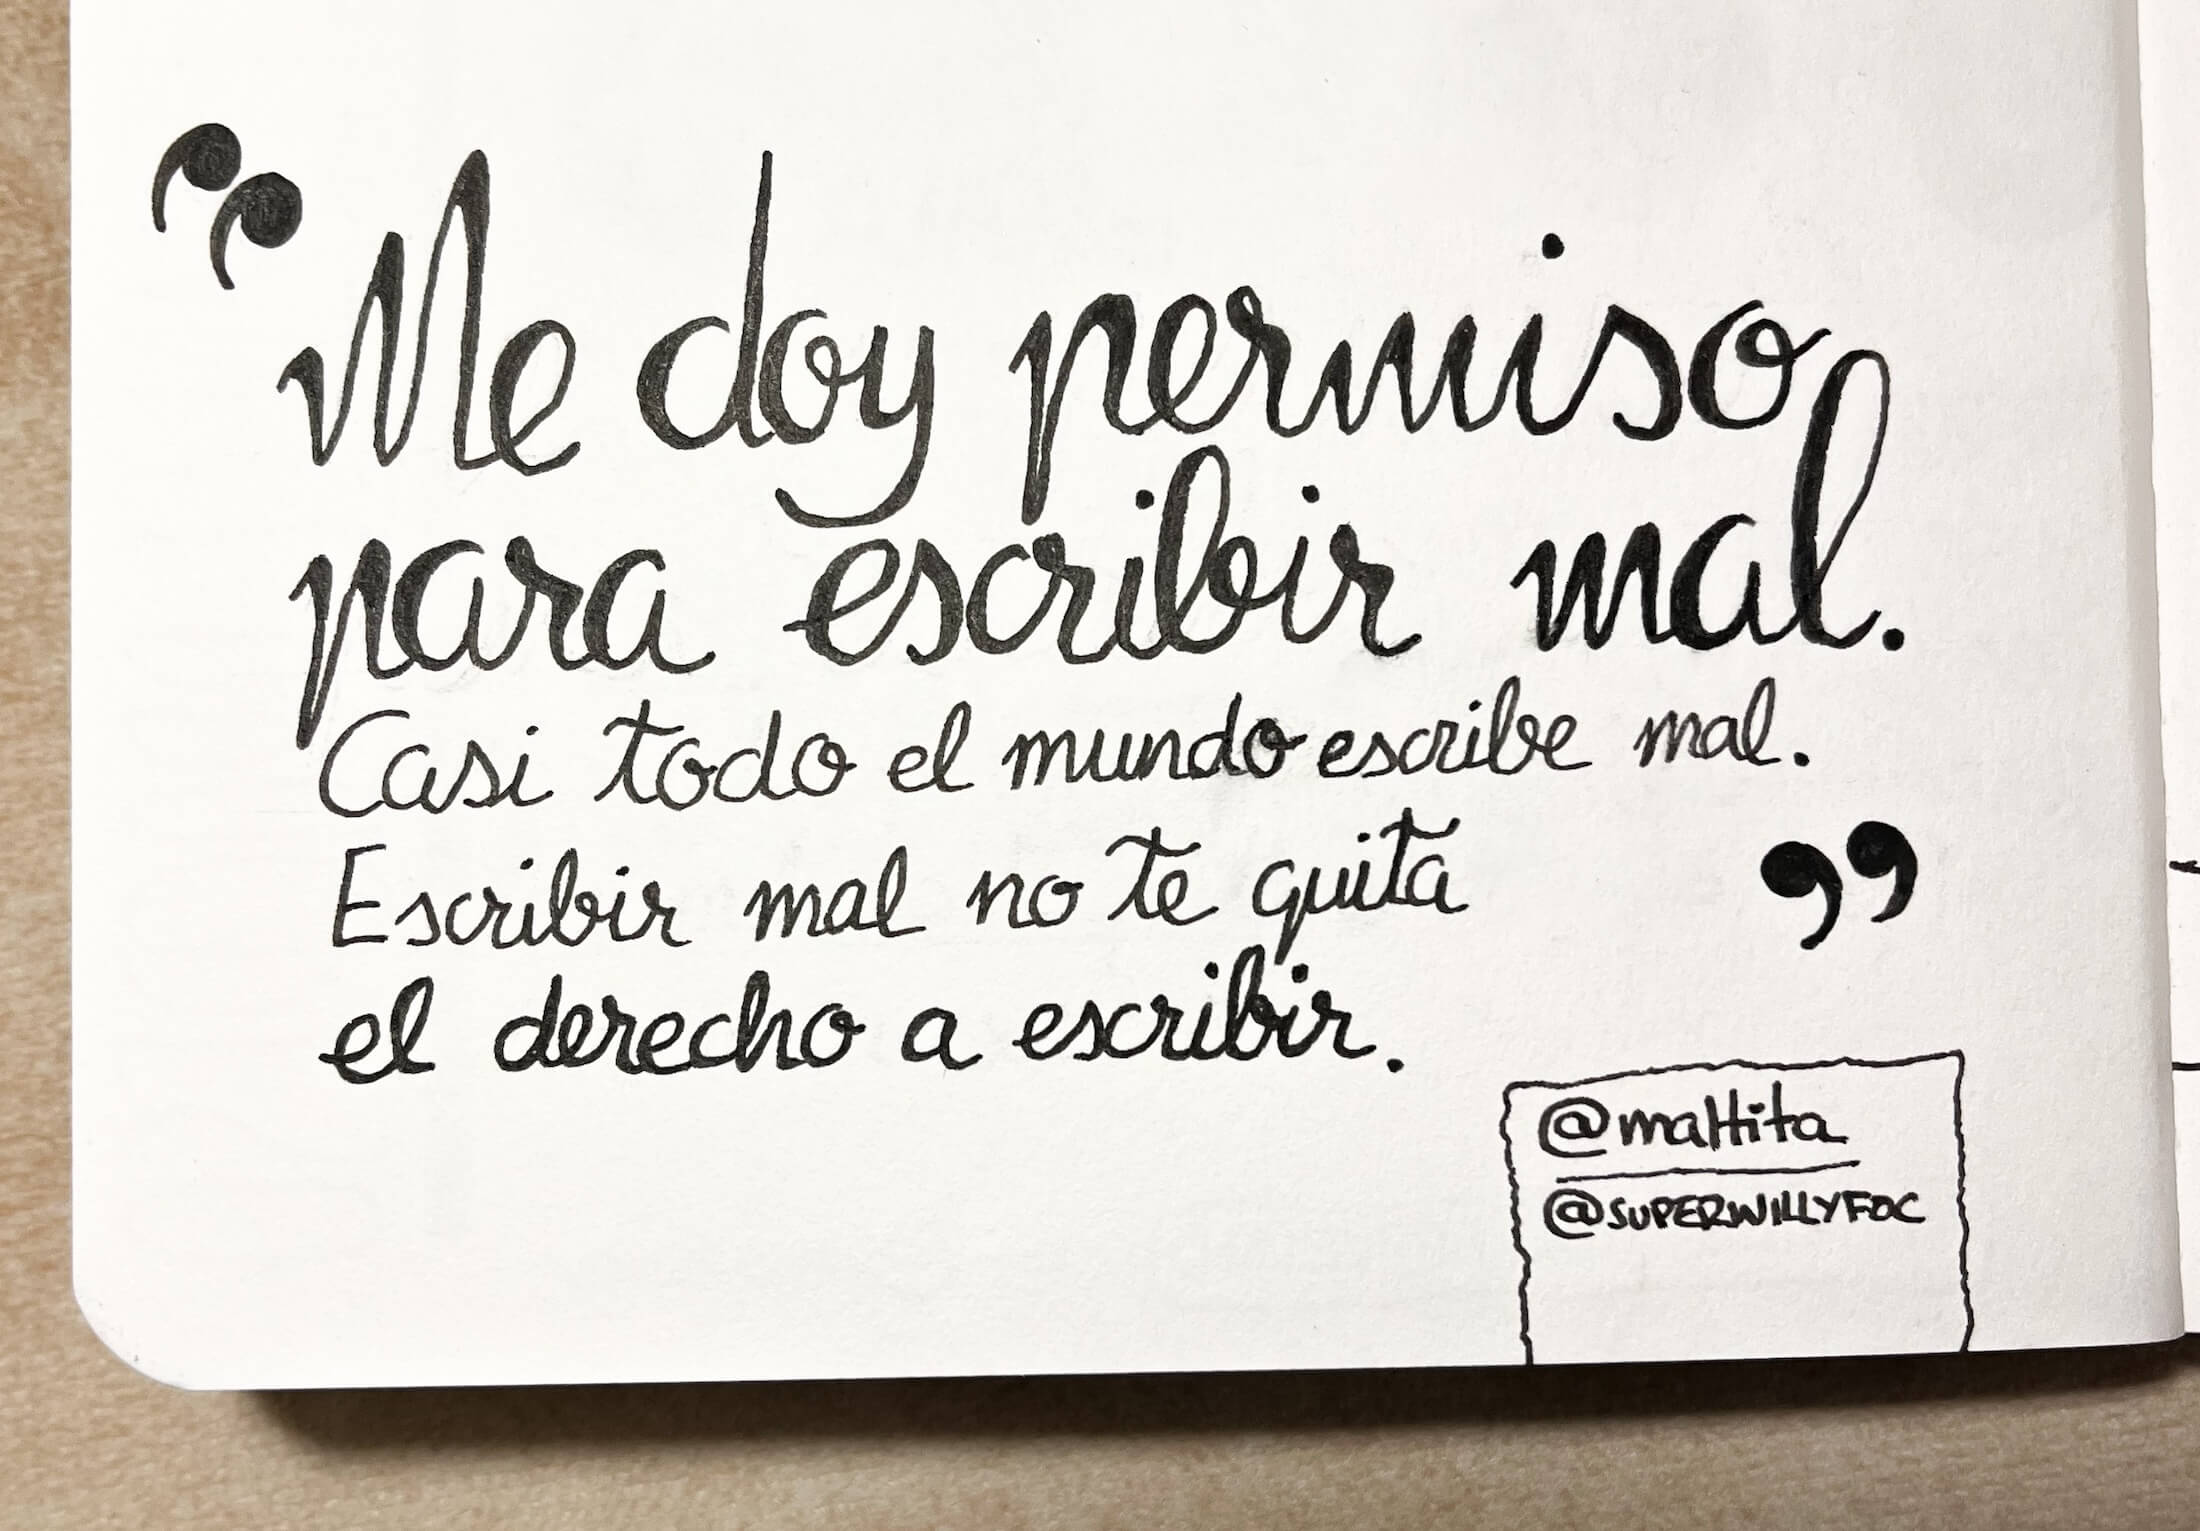 “Me doy permiso
para escribir mal.
Casi todo el mundo escribe mal.
Escribir mal no te quita
el derecho a escribir.”
@maltita
@SUPERWILLYFOC